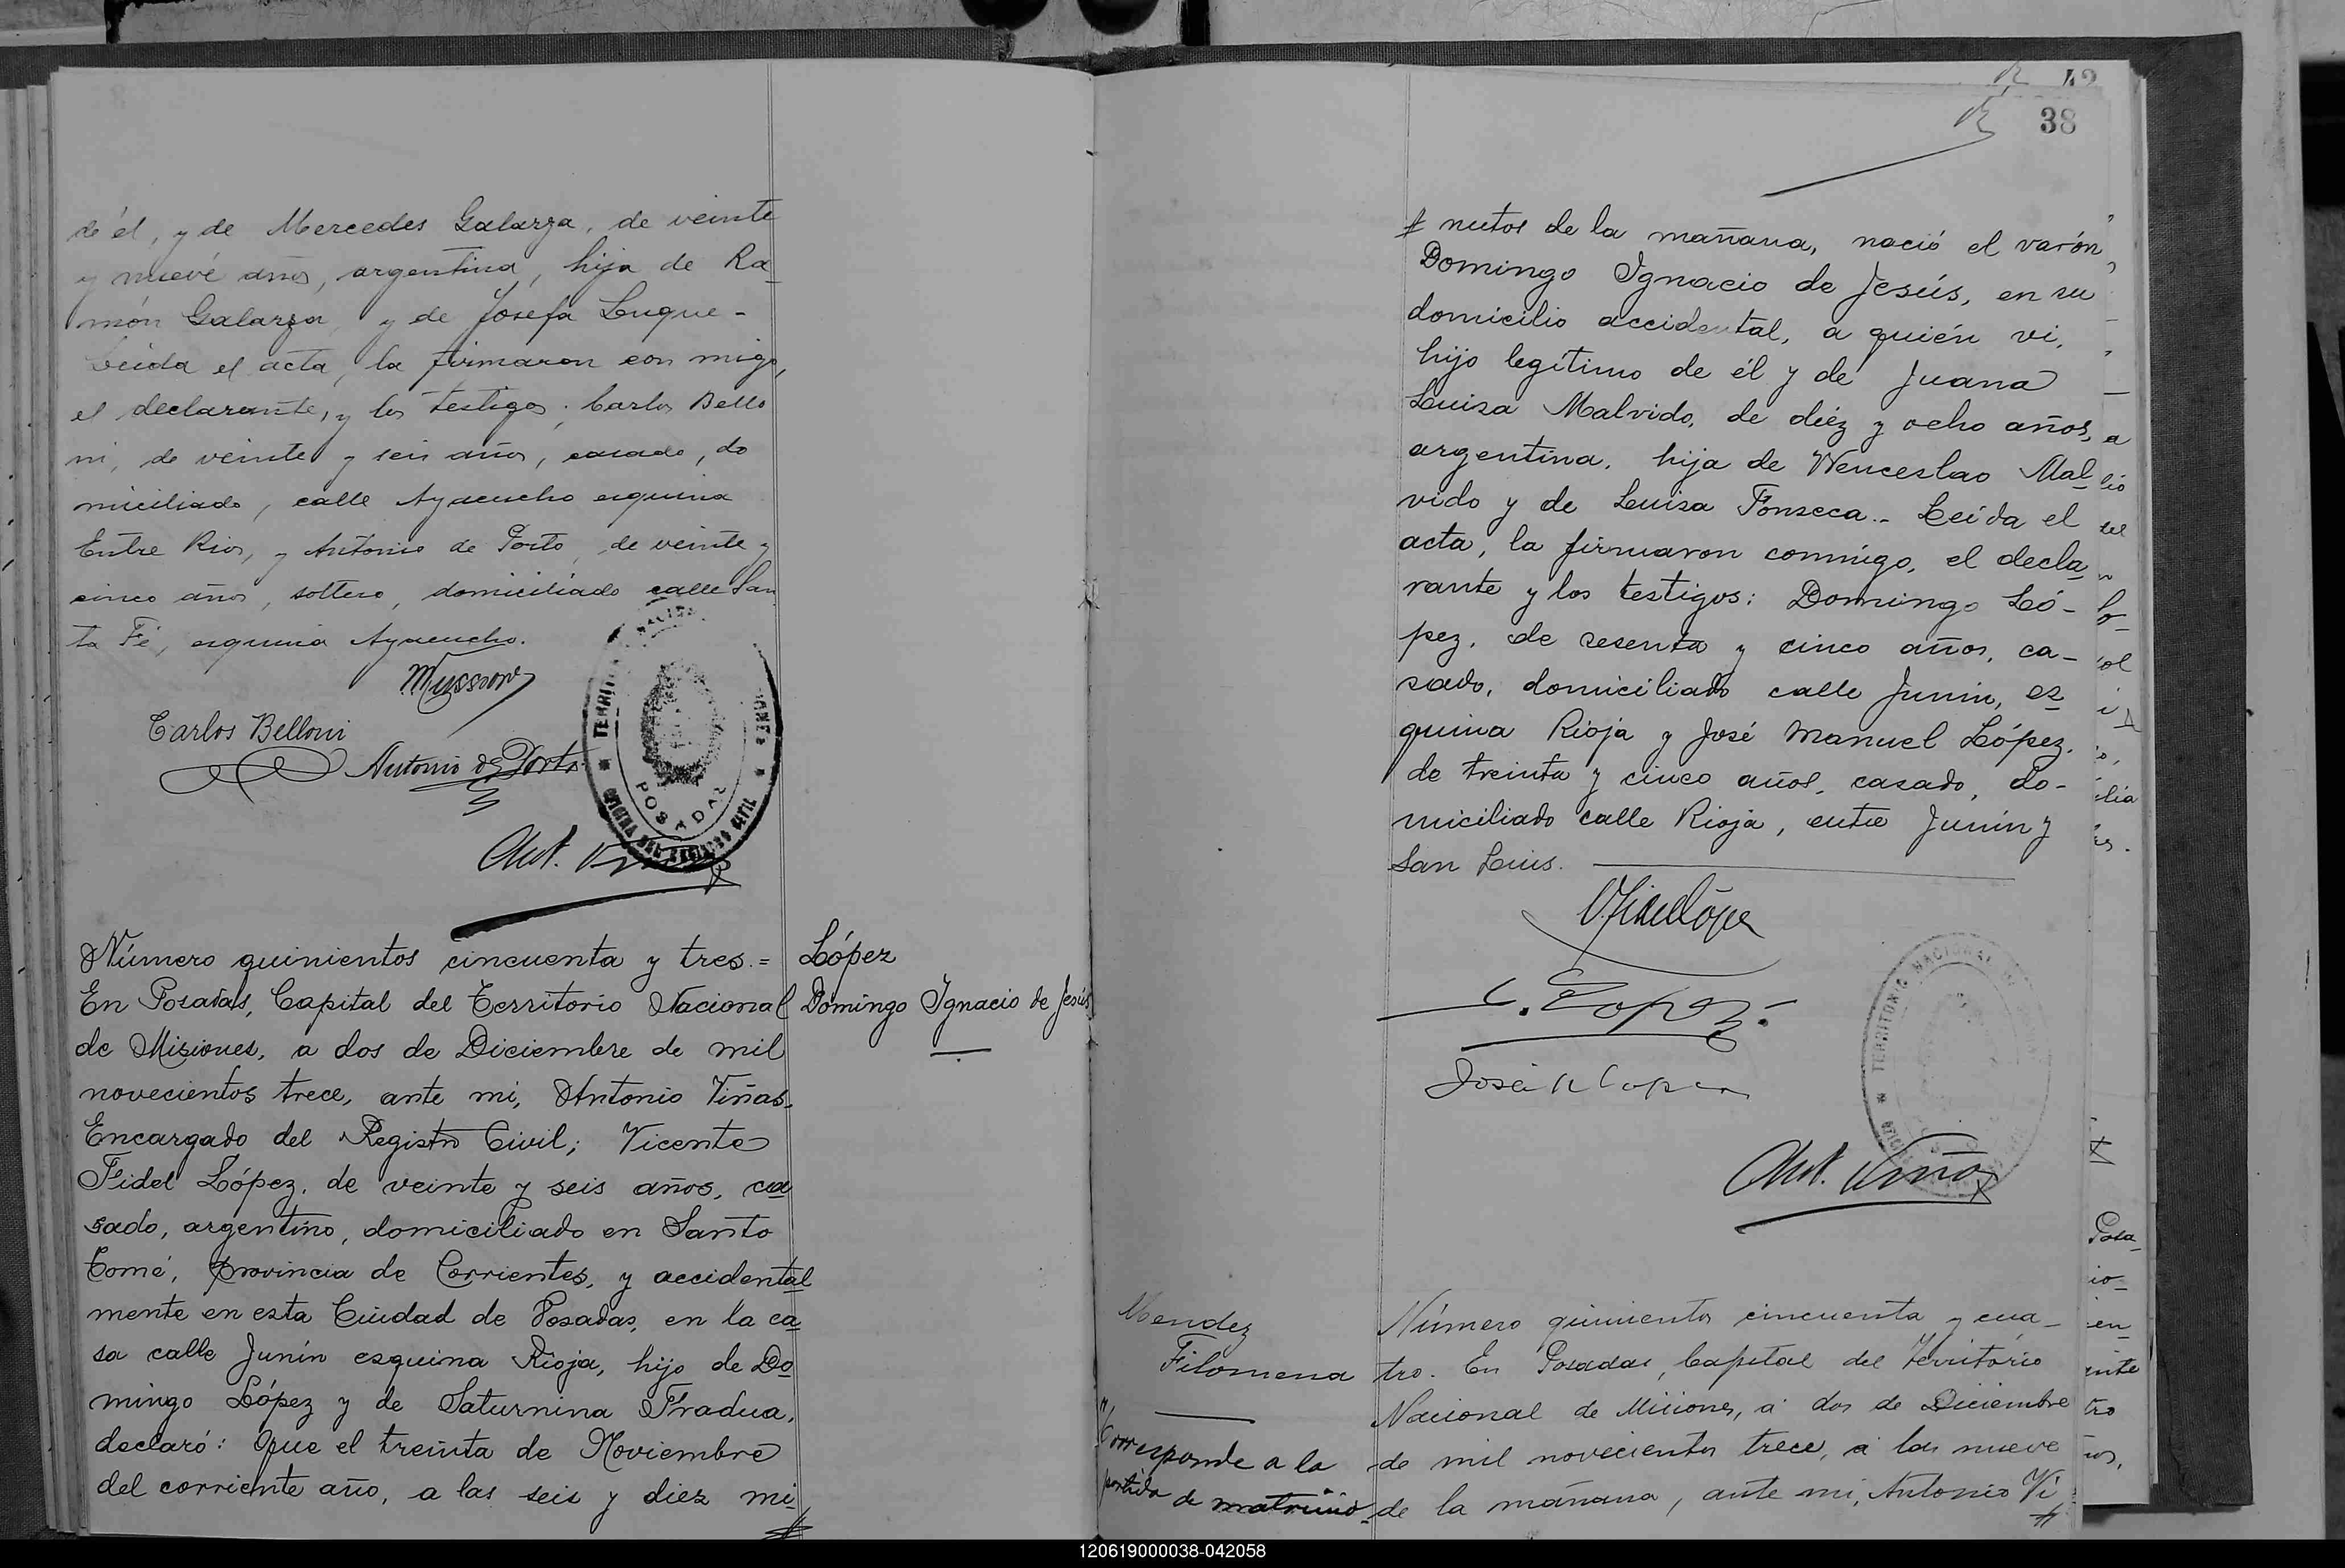 de él, y de Mercedes Galarza, de veinte
y nueve años, argentina, hija de Ra-
món Galarza y de Josefa Luque-
Leída el acta, la firmaron con migo,
el declarante, y los testigos: Carlos Bello
ni, de veinte y seis años, casado, do
miciliado, calle Ayacucho esquina
Entre Rios, y Antonio de Porto, de veinte y
cinco años, soltero, domiciliado calle San
ta Fé, esquina Ayacucho.
Carlos Belloni
Antonio de Porto
TERRITORIO NACIONAL DE MISIONES
POSADAS
OFICINA DEL REGISTRO CIVIL
Ant. Viñas
Número quinientos cincuenta y tres.=
En Posadas, Capital del Territorio Nacional
de Misiones, a dos de Diciembre de mil
novecientos trece, ante mi, Antonio Viñas.
Encargado del Registro Civil; Vicente
Fidel López, de veinte y seis años, ca
sado, argentino, domiciliado en Santo
Tomé, Provincia de Corrientes, y accidental
mente en esta Ciudad de Posadas, en la ca
sa calle Junín esquina Rioja, hijo de Do
mingo López y de Saturnina Fradua,
declaró: Que el treinta de Noviembre
del corriente año, a las seis y diez mi
López
Domingo Ignacio de Jesús
42
38
nutos de la mañana, nació el varón
Domingo Ignacio de Jesús, en su
domicilio accidental, a quién vi,
hijo legítimo de él y de Juana
Luisa Malvido, de diéz y ocho años,
argentina, hija de Wenceslao Mal
vido y de Luisa Fonseca.- Leída el
acta, la firmaron conmigo, el decla
rante y los testigos: Domingo Ló-
pez, de sesenta y cinco años, ca-
sado, domiciliado calle Junín, es
quina Rioja y José Manuel López,
de treinta y cinco años, casado, do-
miciliado calle Rioja, entre Junín y
San Luis.
V. Fidel López
José M Lopez
TERRITORIO NACIONAL
Ant. Viñas
Mendez
Filomena
Corresponde a la
partida de matrimo-
Número quinientos cincuenta y cua-
tro. En Posadas, Capital del Territorio
Nacional de Misiones, á dos de Diciembre
de mil novecientos trece, á las nueve
de la mañana, ante mi, Antonio Vi
120619000038-042058